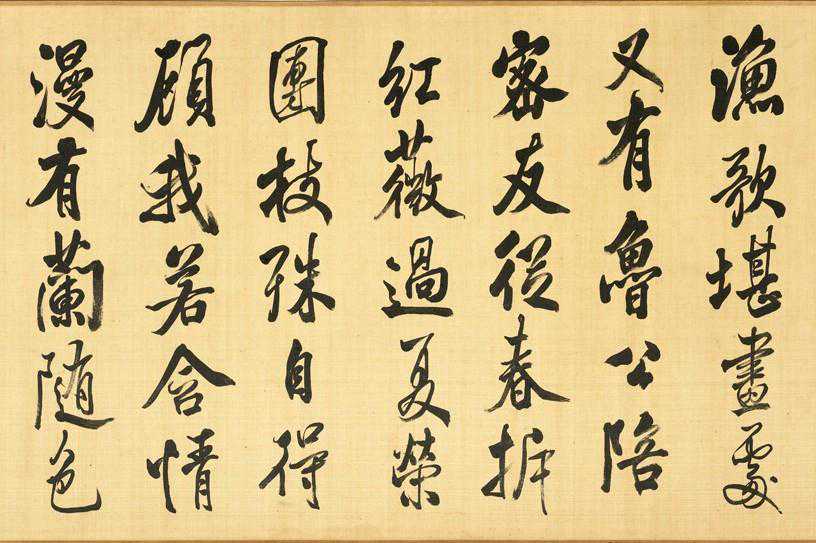 漁歌堪畫處
又有魯公陪
密友從春拆
紅薇過夏榮
團枝殊自得
顧我若含情
漫有蘭随色